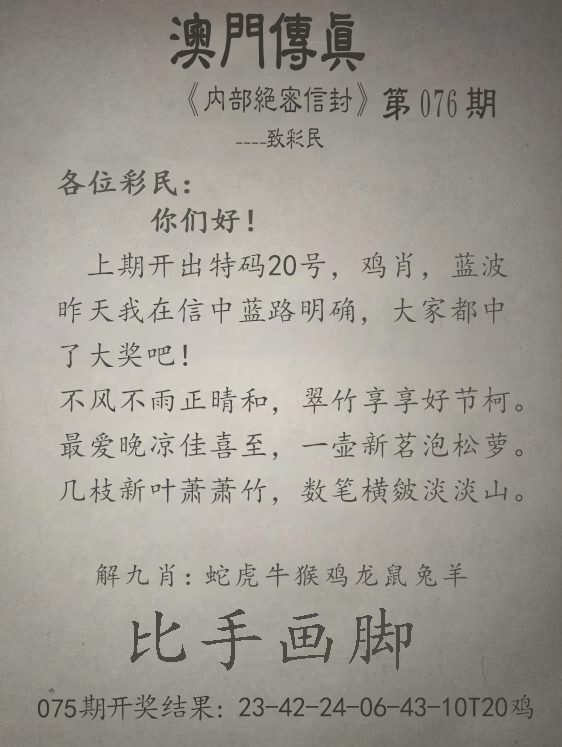 澳門傳眞
《内部絕密信封》第076期
----致彩民
各位彩民：
你们好！
上期开出特码20号，鸡肖，蓝波
昨天我在信中蓝路明确，大家都中
了大奖吧！
不风不雨正晴和，翠竹享享好节柯。
最爱晚凉佳喜至，一壶新茗泡松萝。
几枝新叶萧萧竹，数笔横皴淡淡山。
解九肖：蛇虎牛猴鸡龙鼠兔羊
比手画脚
075期开奖结果：23-42-24-06-43-10T20鸡